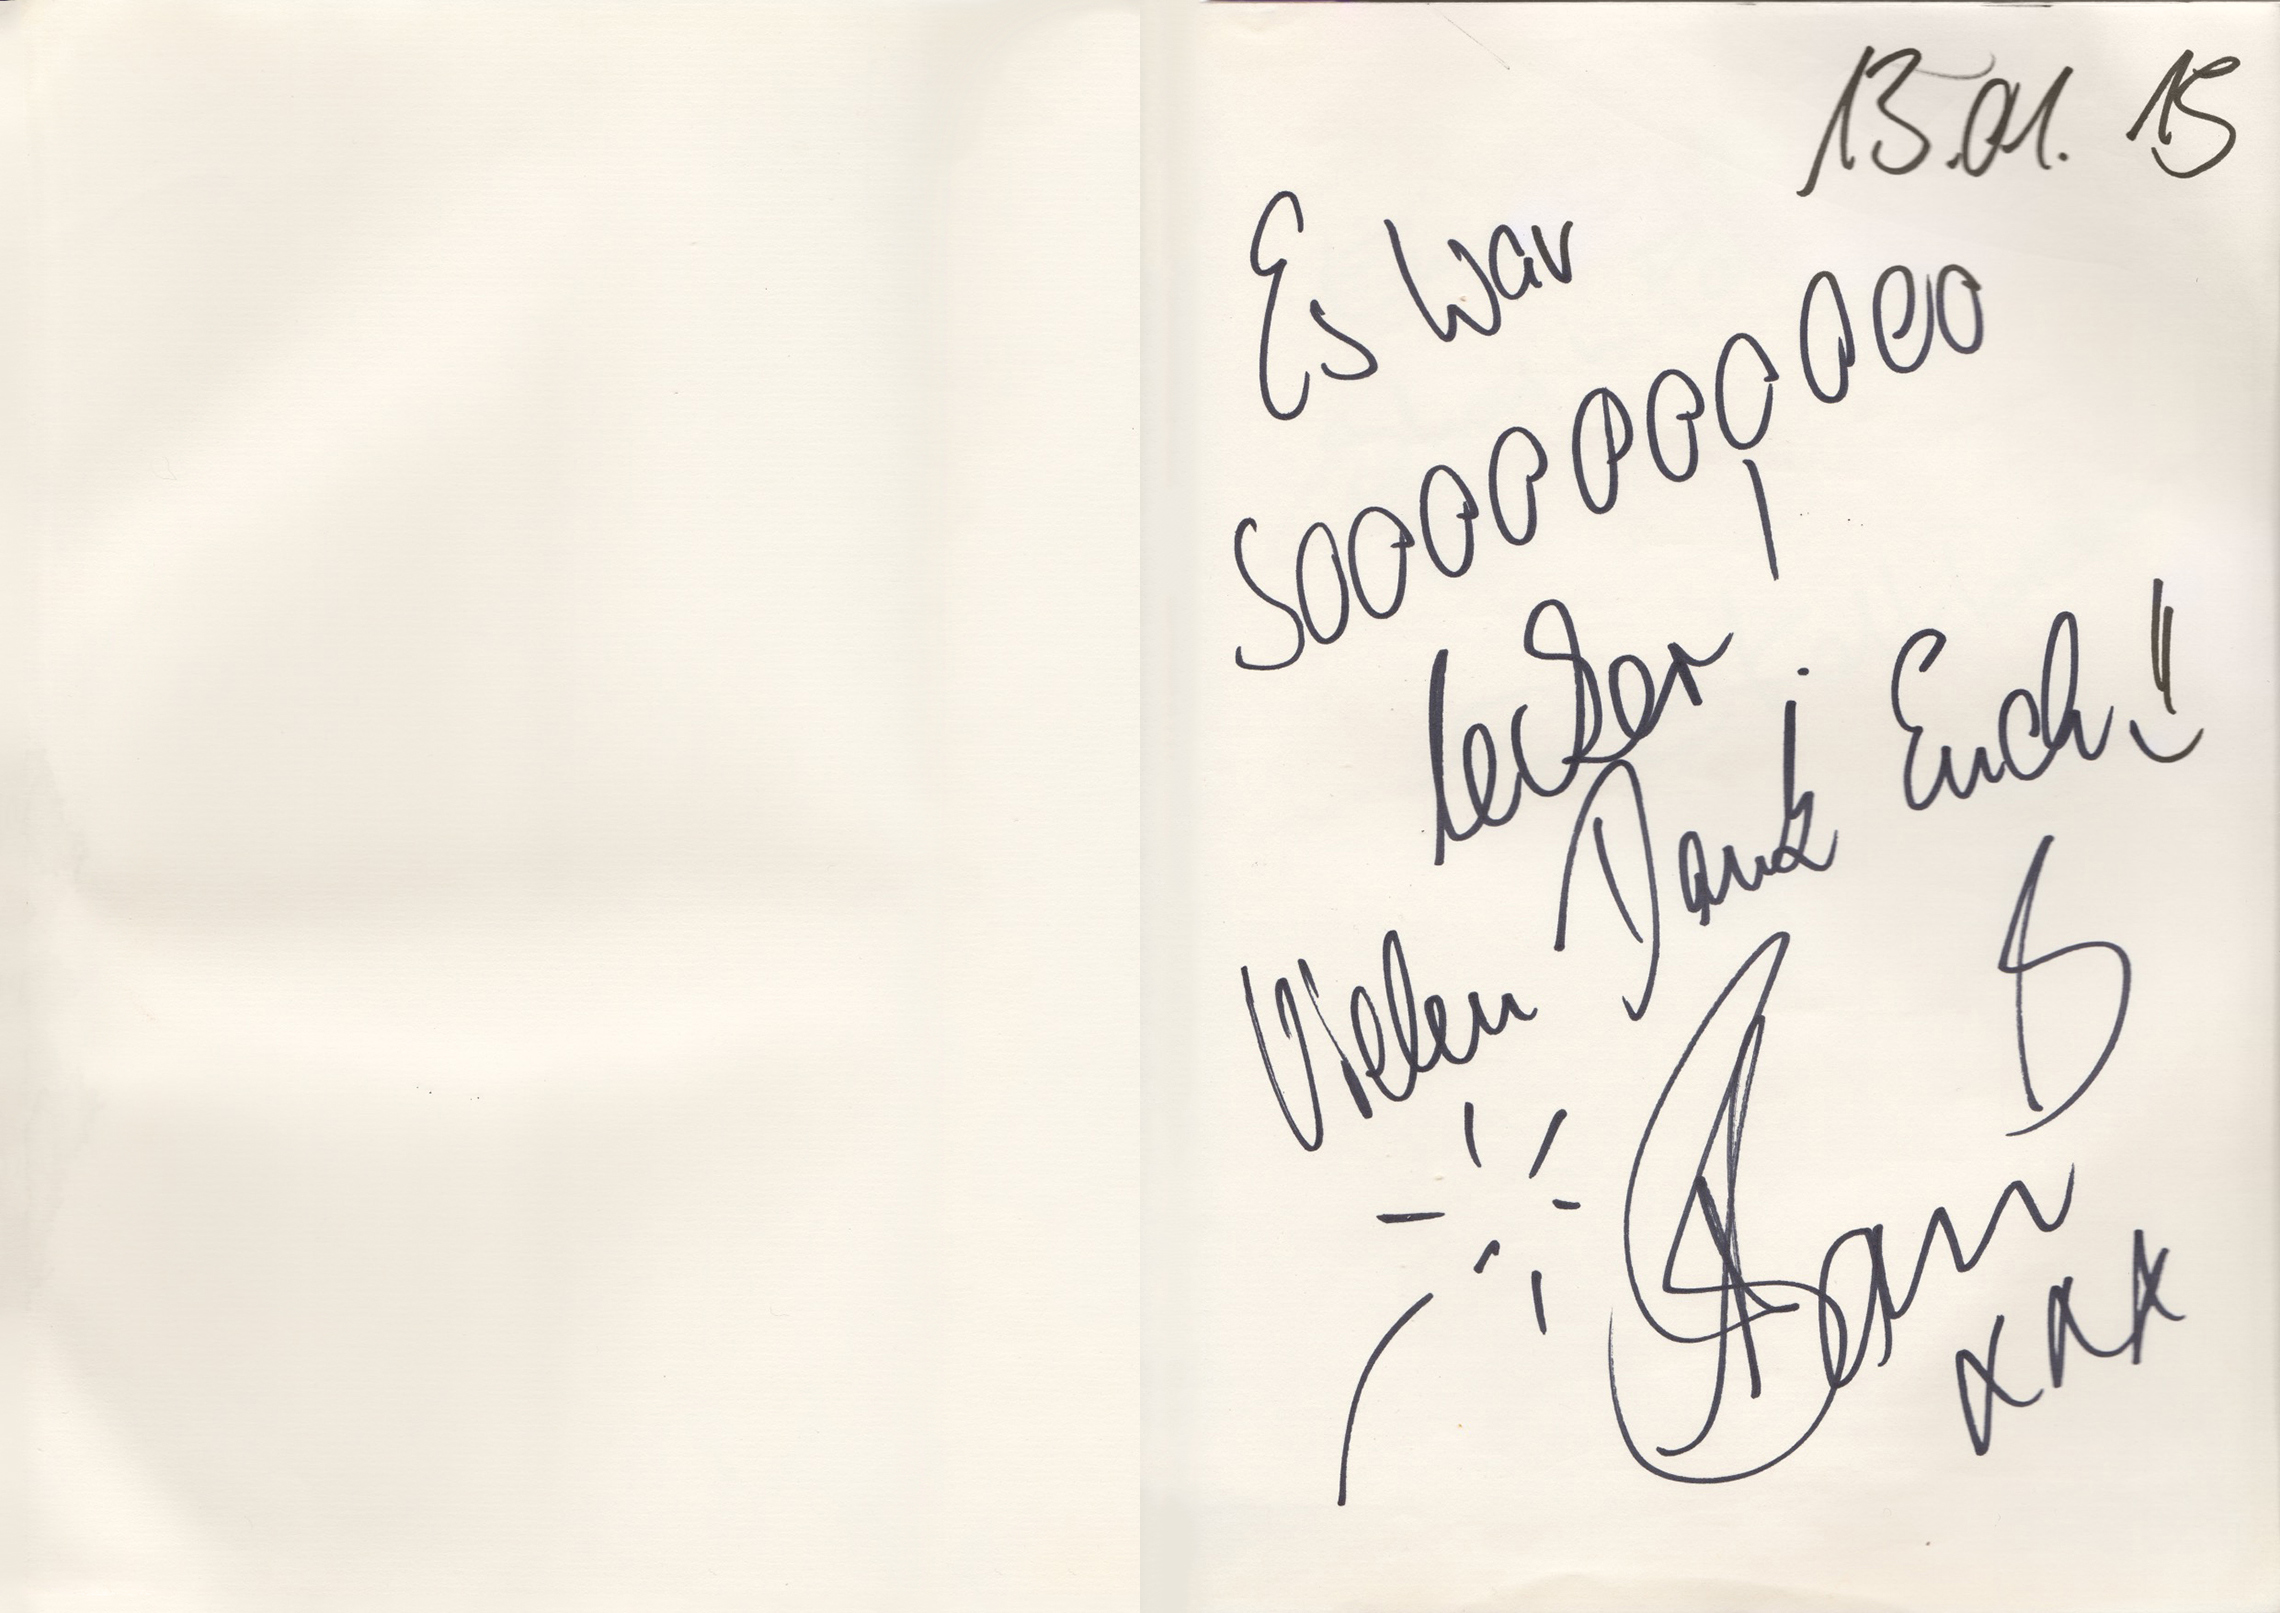 13.01.15
Es war
Soooooooooo
lecker!
Vielen Dank Euch!!
xxx